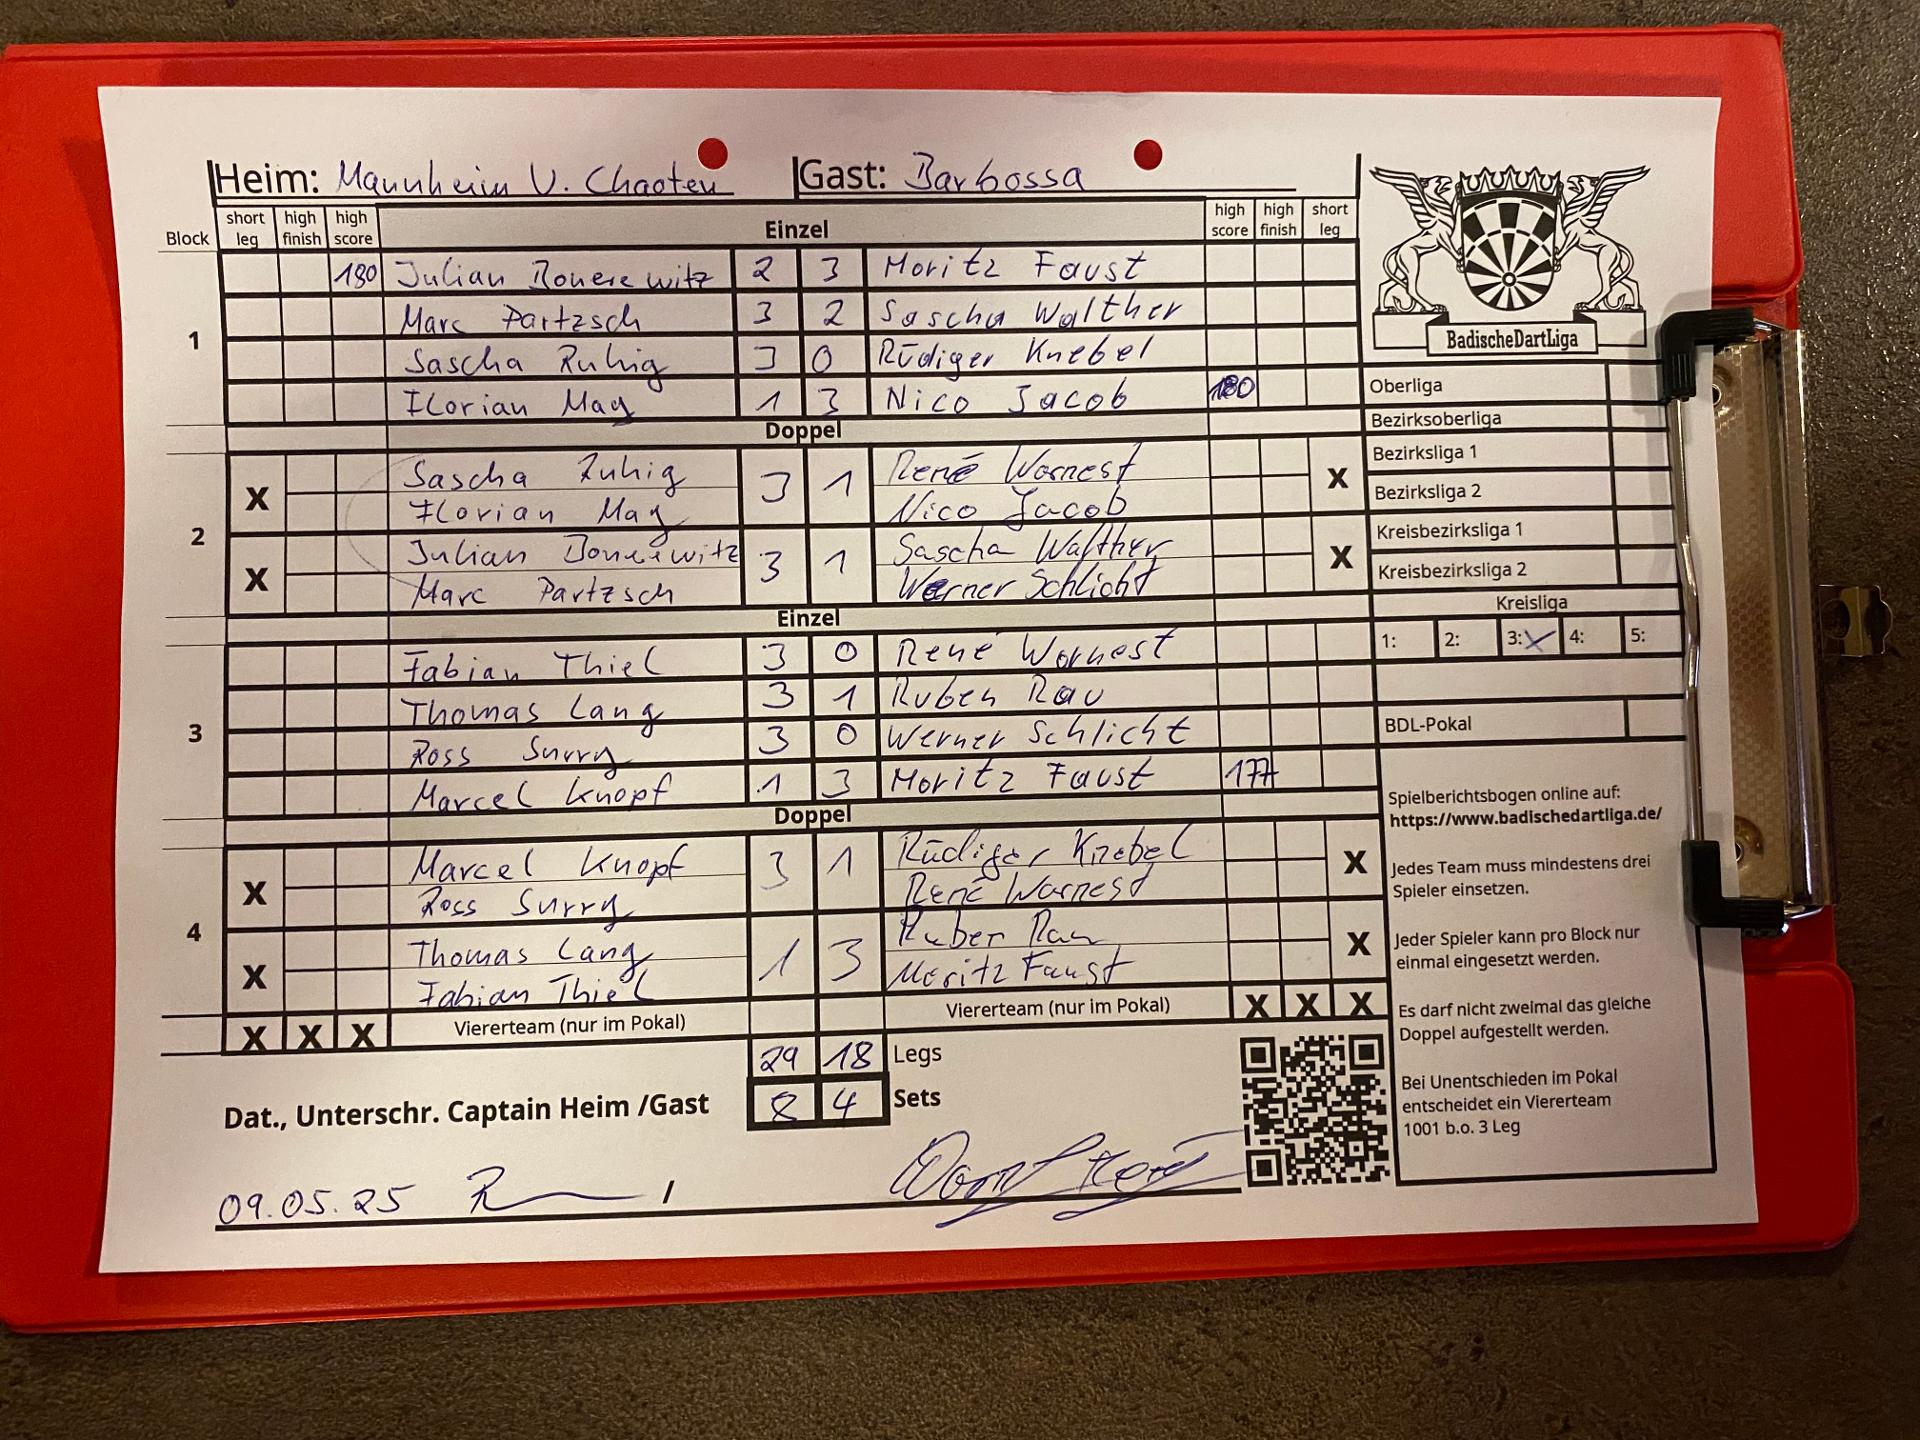 Heim: Mannheim V. Chaoten Gast: Barbossa
Block short leg high finish high score Einzel high score high finish short leg
1
180 Julian Bonerewitz 2 3 Moritz Faust
Marc Partzsch 3 2 Sascha Walther
Sascha Ruhig 3 0 Rüdiger Knebel
Florian May 1 3 Nico Jacob 180
Doppel
2
X Sascha Ruhig 3 1 René Wornest X
Florian May Nico Jacob
X Julian Bonerewitz 3 1 Sascha Walther X
Marc Partzsch Werner Schlicht
Einzel
3
Fabian Thiel 3 0 René Wornest
Thomas Lang 3 1 Ruben Rau
Ross Surry 3 0 Werner Schlicht
Marcel Knopf 1 3 Moritz Faust 177
Doppel
4
X Marcel Knopf 3 1 Rüdiger Knebel X
Ross Surry René Wornest
X Thomas Lang 1 3 Ruben Rau X
Fabian Thiel Moritz Faust
X X X Viererteam (nur im Pokal) Viererteam (nur im Pokal) X X X
29 18 Legs
Dat., Unterschr. Captain Heim /Gast 8 4 Sets
09.05.25 /
BadischeDartLiga
Oberliga
Bezirksoberliga
Bezirksliga 1
Bezirksliga 2
Kreisbezirksliga 1
Kreisbezirksliga 2
Kreisliga
1: 2: 3: X 4: 5:
BDL-Pokal
Spielberichtsbogen online auf:
https://www.badischedartliga.de/
Jedes Team muss mindestens drei
Spieler einsetzen.
Jeder Spieler kann pro Block nur
einmal eingesetzt werden.
Es darf nicht zweimal das gleiche
Doppel aufgestellt werden.
Bei Unentschieden im Pokal
entscheidet ein Viererteam
1001 b.o. 3 Leg